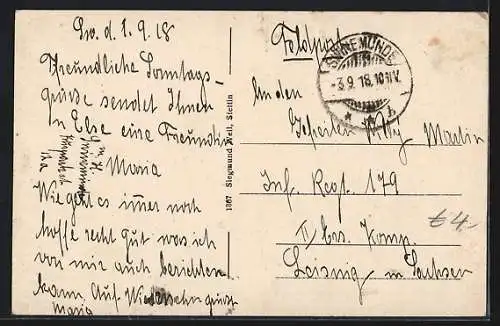 Sw. d. 1.9.18
Freundliche Sonntags-
grüsse sendet Ihnen
u Else eine Freundin
Maria
Wie geht es immer noch
hoffe recht gut was ich
von mir auch berichten
kann. Auf Wiedersehn
Maria
1367 Siegmund Weil, Stettin
Feldpost
SWINEMÜNDE
-3.9.18.10-11V.
An den
Gefreiten Willy Martin
Inf. Regt. 179
II Ers. Komp.
Leisnig in Sachsen
€ 4.-